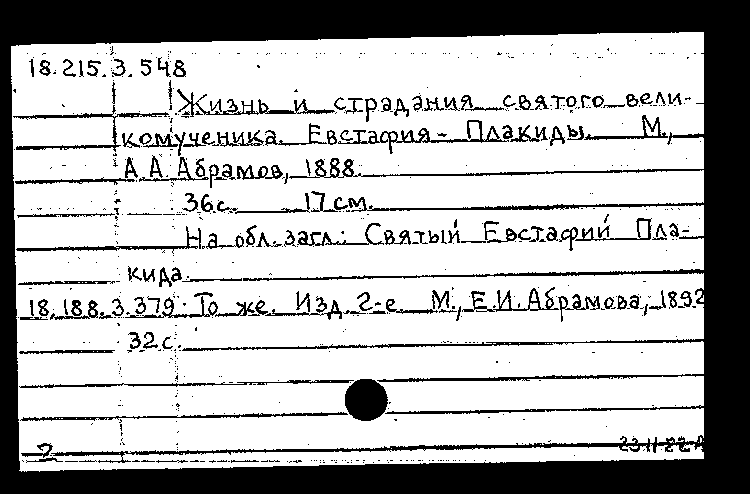 18.215.3.548
Жизнь и страдания святого вели-
комученика Евстафия - Плакиды. М.,
А.А. Абрамов, 1888.
36 с. 17 см.
На обл. загл.: Святый Евстафий Пла-
кида.
18.188.3.379 То же. Изд. 2-е. М., Е.И. Абрамова, 1892
32 с.
2